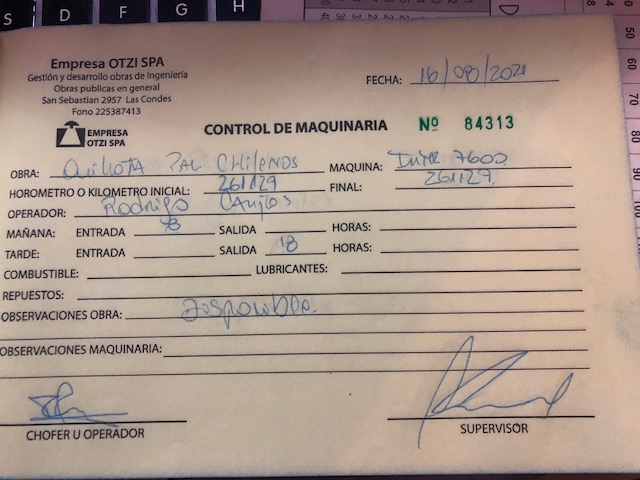 Empresa OTZI SPA
Gestión y desarrollo obras de Ingeniería
Obras publicas en general
San Sebastian 2957 Las Condes
Fono 225387413
FECHA:
EMPRESA
OTZI SPA
CONTROL DE MAQUINARIA Nº 84313
OBRA: Quillota Pac Chilenos MAQUINA: Inter 7600
HOROMETRO O KILOMETRO INICIAL: 261129 FINAL: 261129
OPERADOR: Rodrigo
MAÑANA: ENTRADA 8 SALIDA HORAS:
TARDE: ENTRADA SALIDA 18 HORAS:
COMBUSTIBLE: LUBRICANTES:
REPUESTOS:
OBSERVACIONES OBRA: Disponible.
OBSERVACIONES MAQUINARIA:
CHOFER U OPERADOR SUPERVISOR
S
D
F
G
H
50
60
70
80
90
100